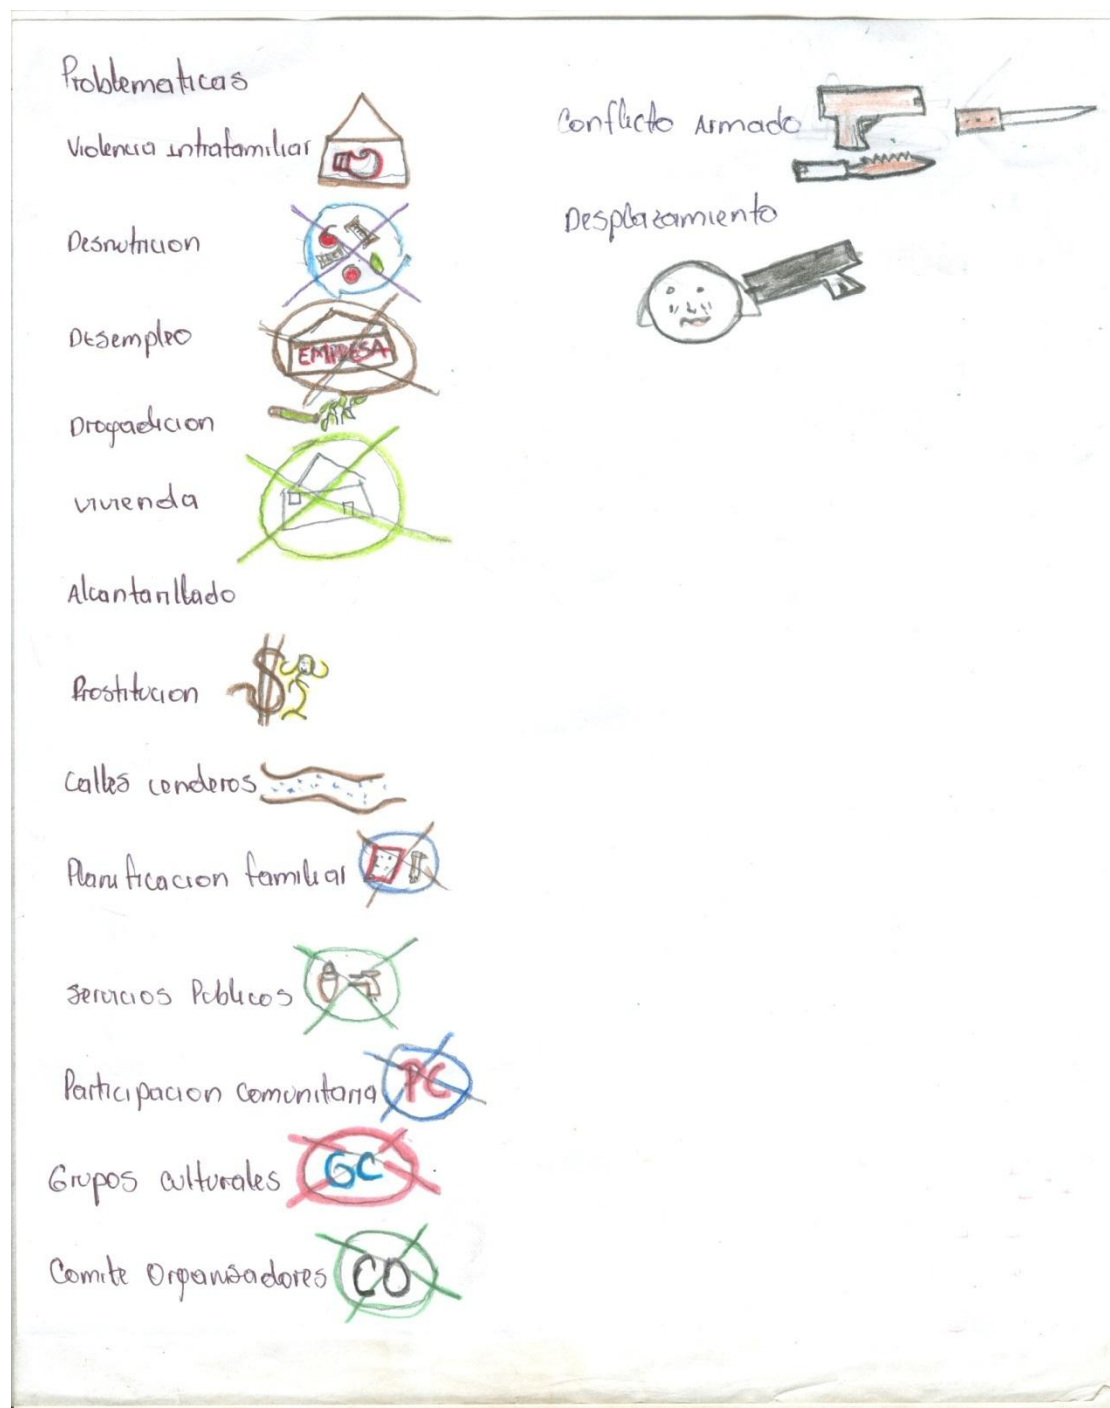 Problematicas
Violencia intrafamiliar
Desnutricion
Desempleo
EMPRESA
Drogadicion
vivienda
Alcantarillado
Prostitucion
$
Calles cenderos
Planificacion familiar
Servicios Publicos
Participacion comunitaria PC
Grupos culturales GC
Comite Organisadores CO
Conflicto Armado
Desplazamiento